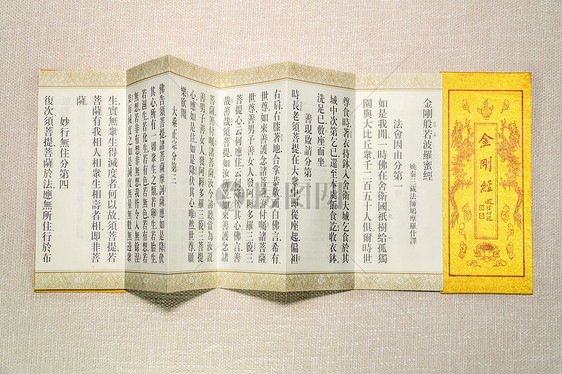 金剛經
金剛般若波羅蜜經
姚秦三藏法師鳩摩羅什譯
法會因由分第一
如是我聞一時佛在舍衛國祇樹給孤獨
園與大比丘眾千二百五十人俱爾時世
尊食時著衣持鉢入舍衛大城乞食於其
城中次第乞已還至本處飯食訖收衣鉢
洗足已敷座而坐
善現啟請分第二
時長老須菩提在大眾中即從座起偏袒
右肩右膝著地合掌恭敬而白佛言希有
世尊如來善護念諸菩薩善付囑諸菩薩
世尊善男子善女人發阿耨多羅三藐三
菩提心云何應住云何降伏其心佛言善
哉善哉須菩提如汝所說如來善護念諸
菩薩善付囑諸菩薩汝今諦聽當為汝說
善男子善女人發阿耨多羅三藐三菩提
心應如是住如是降伏其心唯然世尊願
樂欲聞
大乘正宗分第三
佛告須菩提諸菩薩摩訶薩應如是降伏
其心所有一切眾生之類若卵生若胎生
若濕生若化生若有色若無色若有想若
無想若非有想非無想我皆令入無餘涅
槃而滅度之如是滅度無量無數無邊眾
生實無眾生得滅度者何以故須菩提若
菩薩有我相人相眾生相壽者相即非菩
薩
妙行無住分第四
復次須菩提菩薩於法應無所住行於布